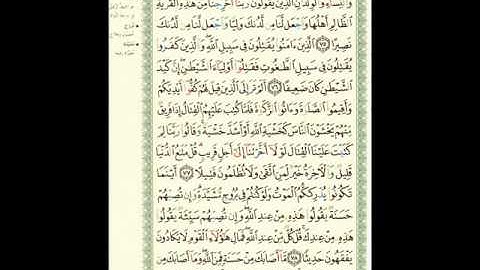 وَالنِّسَاءِ وَالْوِلْدَانِ الَّذِينَ يَقُولُونَ رَبَّنَا أَخْرِجْنَا مِنْ هَٰذِهِ الْقَرْيَةِ
الظَّالِمِ أَهْلُهَا وَاجْعَل لَّنَا مِن لَّدُنكَ وَلِيًّا وَاجْعَل لَّنَا مِن لَّدُنكَ
نَصِيرًا ٧٥ الَّذِينَ ءَامَنُوا يُقَاتِلُونَ فِي سَبِيلِ اللَّهِ وَالَّذِينَ كَفَرُوا
يُقَاتِلُونَ فِي سَبِيلِ الطَّاغُوتِ فَقَاتِلُوا أَوْلِيَاءَ الشَّيْطَانِ إِنَّ كَيْدَ
الشَّيْطَانِ كَانَ ضَعِيفًا ٧٦ أَلَمْ تَرَ إِلَى الَّذِينَ قِيلَ لَهُمْ كُفُّوا أَيْدِيَكُمْ
وَأَقِيمُوا الصَّلَاةَ وَءَاتُوا الزَّكَاةَ فَلَمَّا كُتِبَ عَلَيْهِمُ الْقِتَالُ إِذَا فَرِيقٌ
مِّنْهُمْ يَخْشَوْنَ النَّاسَ كَخَشْيَةِ اللَّهِ أَوْ أَشَدَّ خَشْيَةً وَقَالُوا رَبَّنَا لِمَ
كَتَبْتَ عَلَيْنَا الْقِتَالَ لَوْلَا أَخَّرْتَنَا إِلَىٰ أَجَلٍ قَرِيبٍ قُلْ مَتَاعُ الدُّنْيَا
قَلِيلٌ وَالْآخِرَةُ خَيْرٌ لِّمَنِ اتَّقَىٰ وَلَا تُظْلَمُونَ فَتِيلًا ٧٧ أَيْنَمَا
تَكُونُوا يُدْرِككُّمُ الْمَوْتُ وَلَوْ كُنتُمْ فِي بُرُوجٍ مُّشَيَّدَةٍ وَإِن تُصِبْهُمْ
حَسَنَةٌ يَقُولُوا هَٰذِهِ مِنْ عِندِ اللَّهِ وَإِن تُصِبْهُمْ سَيِّئَةٌ يَقُولُوا
هَٰذِهِ مِنْ عِندِكَ قُلْ كُلٌّ مِّنْ عِندِ اللَّهِ فَمَالِ هَٰؤُلَاءِ الْقَوْمِ لَا يَكَادُونَ
يَفْقَهُونَ حَدِيثًا ٧٨ مَّا أَصَابَكَ مِنْ حَسَنَةٍ فَمِنَ اللَّهِ وَمَا أَصَابَكَ مِن